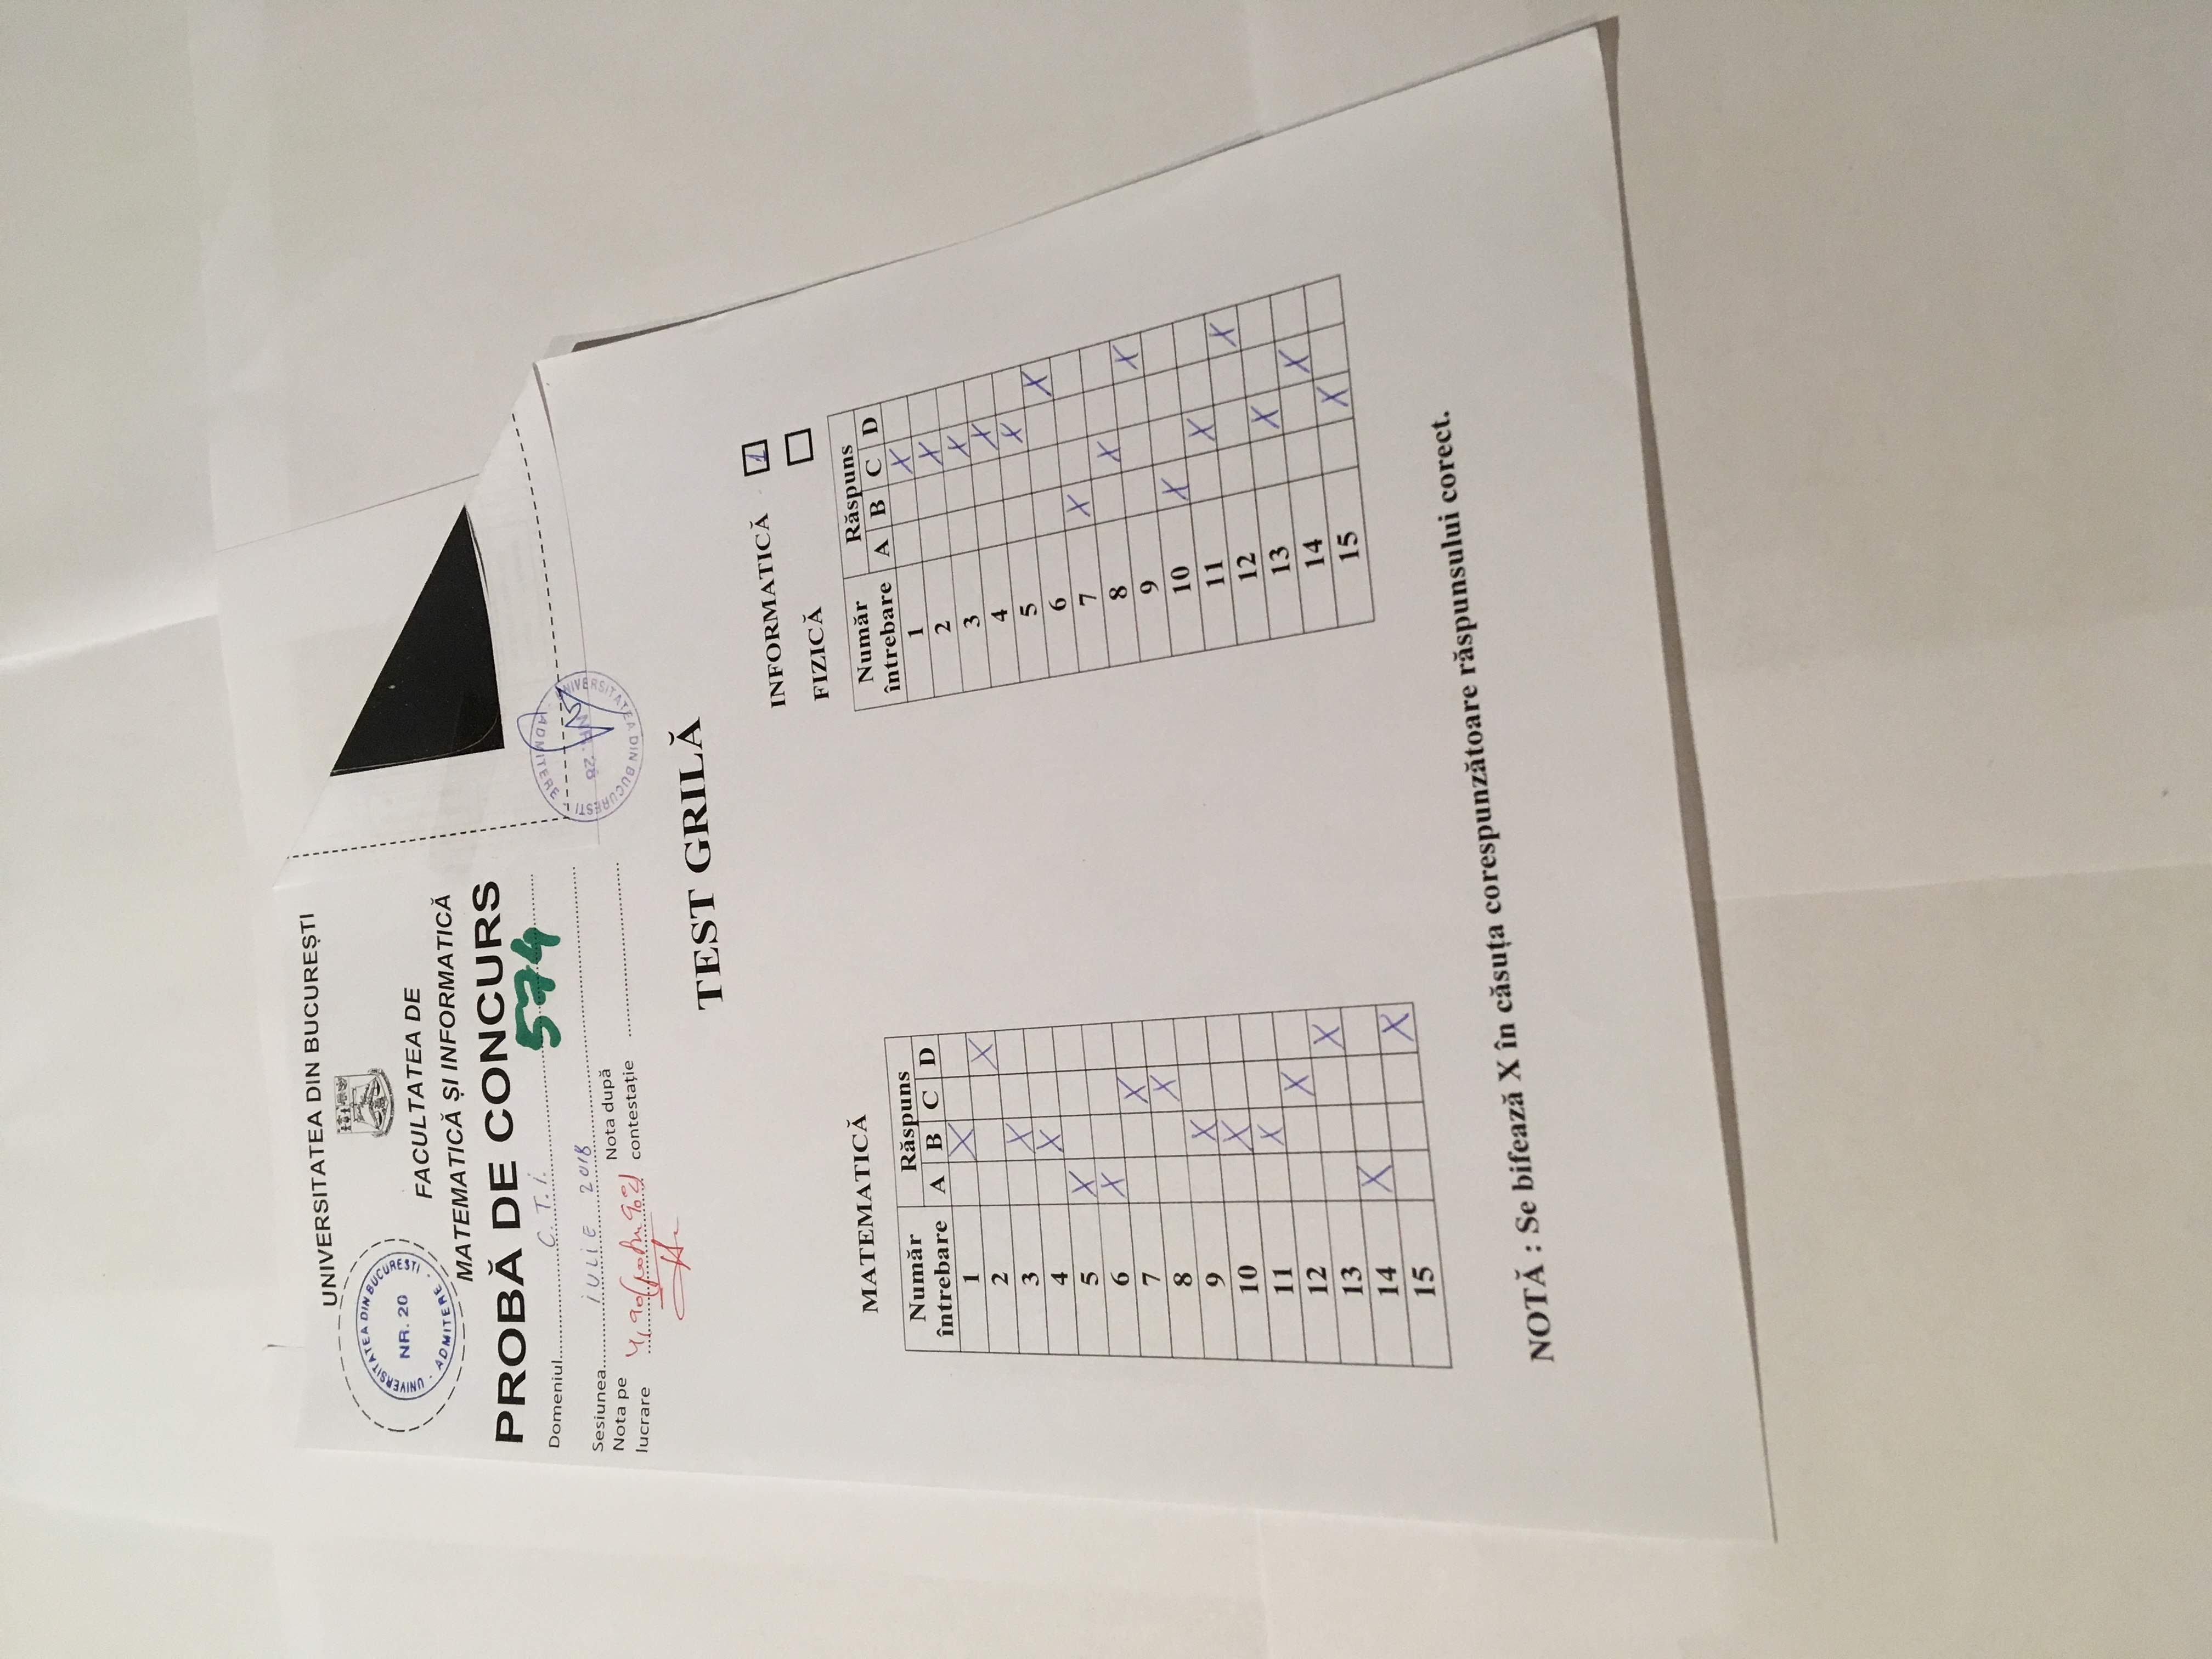 UNIVERSITATEA DIN BUCUREȘTI
UNIVERSITATEA DIN BUCUREȘTI
NR. 20
ADMITERE
FACULTATEA DE
MATEMATICĂ ȘI INFORMATICĂ
PROBĂ DE CONCURS
Domeniul C.T.I. 574
Sesiunea IULIE 2018
Nota pe lucrare 4,90
Nota după contestație
UNIVERSITATEA DIN BUCUREȘTI
NR. 28
ADMITERE
TEST GRILĂ
MATEMATICĂ
Număr întrebare Răspuns
A B C D
1 X
2 X
3 X
4 X
5 X
6 X
7 X
8 X
9 X
10 X
11 X
12 X
13 X
14 X
15 X
INFORMATICĂ 1
FIZICĂ
Număr întrebare Răspuns
A B C D
1 X
2 X
3 X
4 X
5 X
6 X
7 X
8 X
9 X
10 X
11 X
12 X
13 X
14 X
15 X
NOTĂ : Se bifează X în căsuța corespunzătoare răspunsului corect.